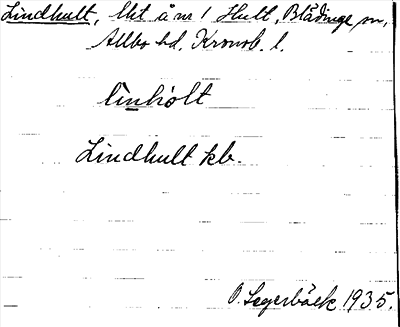 Lindhult, lht å nr 1 Hult, Blädinge sn,
Allbo hd, Kronob. l.
linholt
Lindhult kb.
O. Segerbäck 1935.